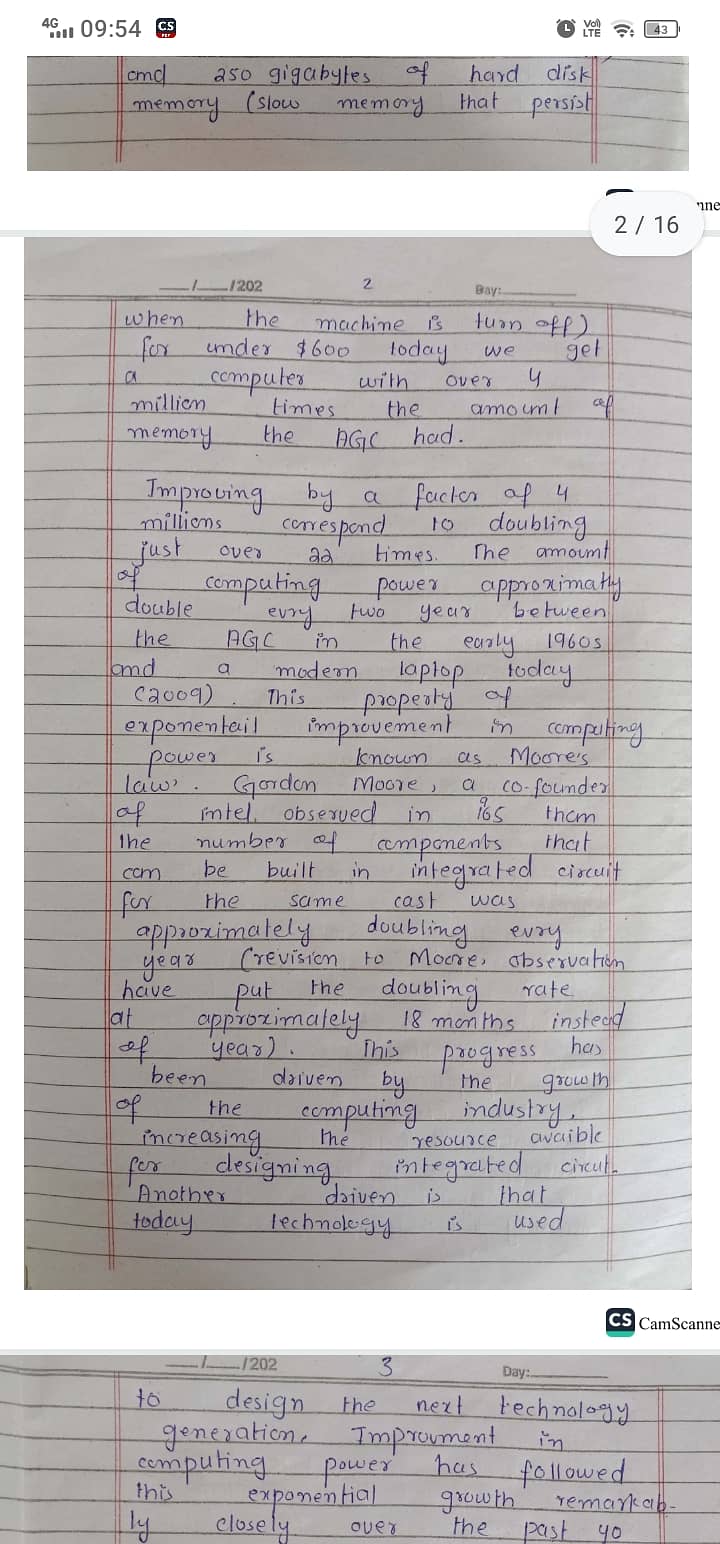 4G 09:54 CS PDF Vo) LTE 43
and 250 gigabytes of hard disk
memory (slow memory that persist
2 / 16
nne
__/__/202 2 Day:
when the machine is turn off)
for under $600 today we get
a computer with over 4
million times the amount of
memory the AGC had.
Improving by a factor of 4
millions correspond to doubling
just over 22 times. The amount
of computing power approximatly
double evry two year between
the AGC in the early 1960s
and a modern laptop today
(2009). This property of
exponentail improvement in computing
power is known as Moore's
law'. Gordon Moore, a co-founder
of intel, observed in 965 tham
the number of components that
can be built in integrated circuit
for the same cast was
approximately doubling evry
year (revision to Moore, observation
have put the doubling rate
at approximately 18 months instead
of year). This progress has
been driven by the growth
of the computing industry,
increasing the resource avaible
for designing integrated circut.
Another driven is that
today technology is used
CS CamScanne
__/__/202 3 Day:
to design the next technology
generation. Improvment in
computing power has followed
this exponential growth remarkab-
ly closely over the past 40